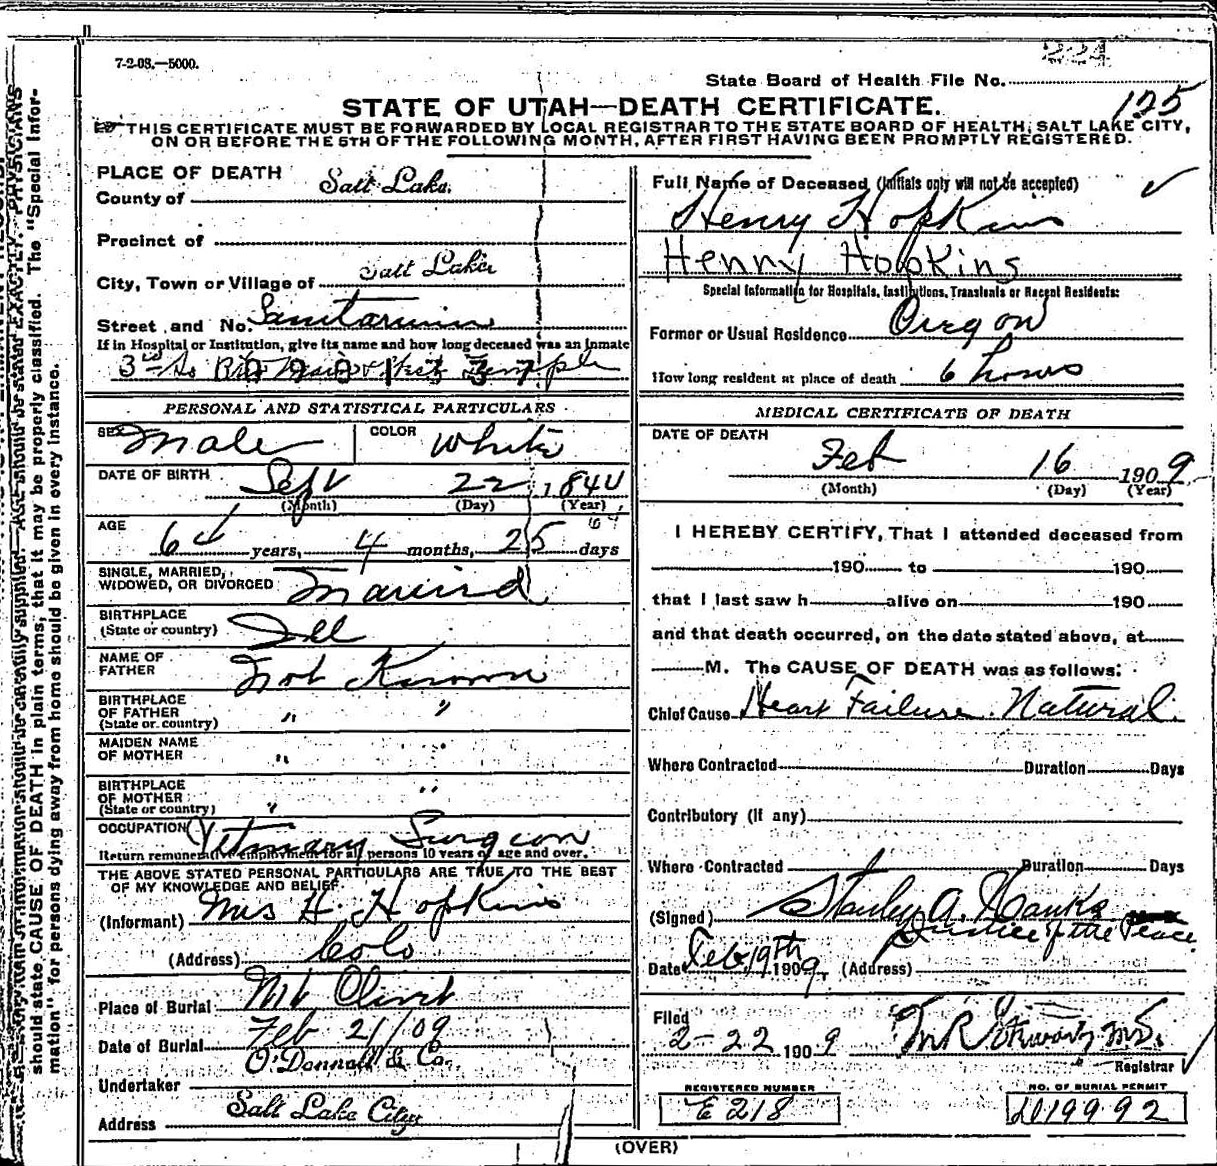 7-2-08.—5000.
224
State Board of Health File No.
125
STATE OF UTAH—DEATH CERTIFICATE.
THIS CERTIFICATE MUST BE FORWARDED BY LOCAL REGISTRAR TO THE STATE BOARD OF HEALTH, SALT LAKE CITY,
ON OR BEFORE THE 5TH OF THE FOLLOWING MONTH, AFTER FIRST HAVING BEEN PROMPTLY REGISTERED.
PLACE OF DEATH
County of Salt Lake.
Precinct of
City, Town or Village of Salt Lake
Street and No. Sanitarium
If in Hospital or Institution, give its name and how long deceased was an inmate
3rd So Temple
PERSONAL AND STATISTICAL PARTICULARS
SEX Male COLOR White
DATE OF BIRTH Sept 22 1844
(Month) (Day) (Year)
AGE
64 years, 4 months, 25 days
SINGLE, MARRIED,
WIDOWED, OR DIVORCED Married
BIRTHPLACE
(State or country) Ill
NAME OF
FATHER Not Known
BIRTHPLACE
OF FATHER
(State or country) " "
MAIDEN NAME
OF MOTHER " "
BIRTHPLACE
OF MOTHER
(State or country) " "
OCCUPATION Vetinary Surgeon
Return remunerative employment for all persons 10 years of age and over.
THE ABOVE STATED PERSONAL PARTICULARS ARE TRUE TO THE BEST
OF MY KNOWLEDGE AND BELIEF
(Informant) Mrs H. Hopkins
(Address) Colo
Place of Burial Mt Olivet
Date of Burial Feb 21/09
Undertaker O'Donnell & Co.
Address Salt Lake City
Full Name of Deceased (Initials only will not be accepted)
Henry Hopkins
Henry Hopkins
Special Information for Hospitals, Institutions, Transients or Recent Residents:
Former or Usual Residence Oregon
How long resident at place of death 6 hours
MEDICAL CERTIFICATE OF DEATH
DATE OF DEATH
Feb 16 1909
(Month) (Day) (Year)
I HEREBY CERTIFY, That I attended deceased from
190 to 190
that I last saw h alive on 190
and that death occurred, on the date stated above, at
M. The CAUSE OF DEATH was as follows:
Chief Cause Heart Failure. Natural.
Where Contracted Duration Days
Contributory (if any)
Where Contracted Duration Days
(Signed) Stanley A. Hanks
Justice of the Peace
Date Feb 19th 1909. (Address)
Filed
2-22 1909
Registrar
REGISTERED NUMBER
E 218
NO. OF BURIAL PERMIT
(OVER)
should state CAUSE OF DEATH in plain terms, that it may be properly classified. The "Special Infor-
mation" for persons dying away from home should be given in every instance.